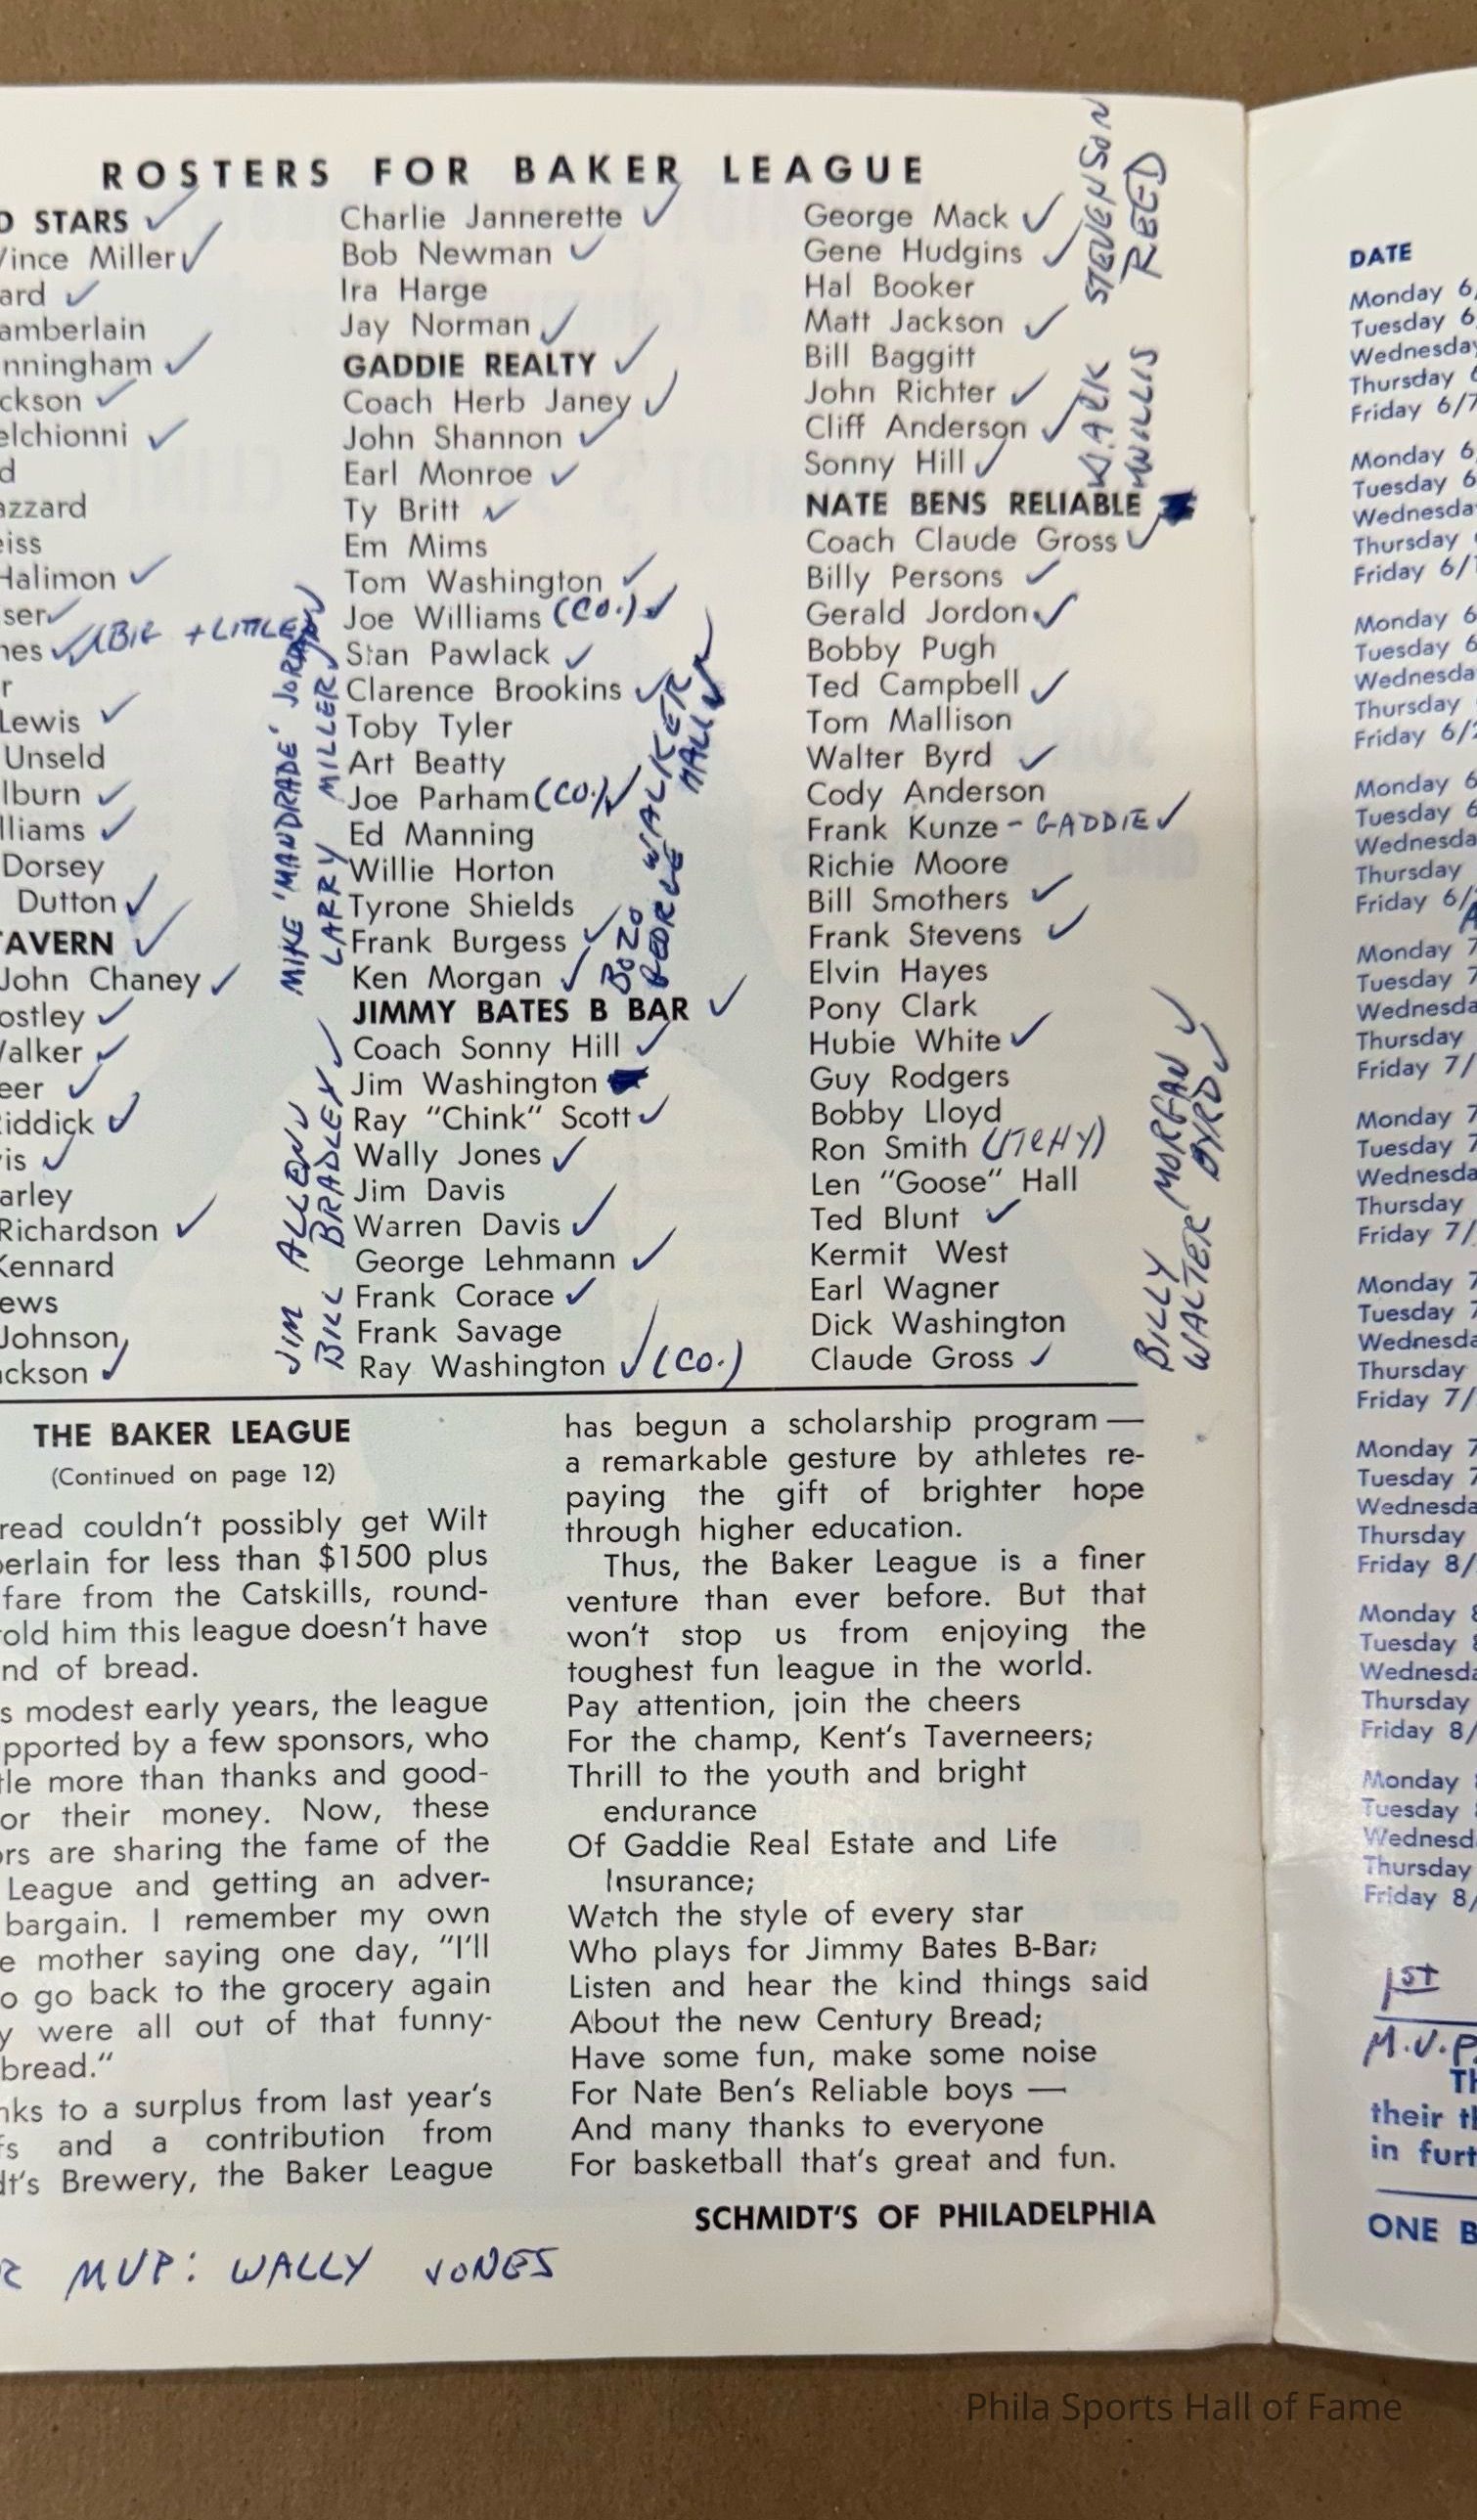 ROSTERS FOR BAKER LEAGUE
STARS ✓
Vince Miller ✓
ard ✓
amberlain
nningham ✓
ckson ✓
elchionni ✓
d
azzard
eiss
Halimon ✓
ser ✓
nes ✓ (BIG + LITTLE)
r
Lewis ✓
Unseld
lburn ✓
lliams ✓
Dorsey
Dutton ✓
TAVERN ✓
John Chaney ✓
ostley ✓
Walker ✓
eer ✓
Riddick ✓
is ✓
arley
Richardson ✓
Kennard
ews
Johnson
ckson ✓
MIKE 'MANDRADE' JORDAN
LARRY MILLER
JIM ALLEN
BILL BRADLEY ✓
Charlie Jannerette ✓
Bob Newman ✓
Ira Harge
Jay Norman ✓
GADDIE REALTY ✓
Coach Herb Janey ✓
John Shannon ✓
Earl Monroe ✓
Ty Britt ✓
Em Mims
Tom Washington ✓
Joe Williams (CO.) ✓
Stan Pawlack ✓
Clarence Brookins ✓
Toby Tyler
Art Beatty
Joe Parham (CO.) ✓
Ed Manning
Willie Horton
Tyrone Shields
Frank Burgess ✓
Ken Morgan ✓
BOZO WALKER
GEORGE HALL ✓
JIMMY BATES B BAR ✓
Coach Sonny Hill ✓
Jim Washington
Ray "Chink" Scott ✓
Wally Jones ✓
Jim Davis
Warren Davis ✓
George Lehmann ✓
Frank Corace ✓
Frank Savage
Ray Washington ✓ (CO.)
George Mack ✓
Gene Hudgins ✓
Hal Booker
Matt Jackson ✓
Bill Baggitt
John Richter ✓
Cliff Anderson ✓
Sonny Hill ✓
STEVENSON
WILLIS REED
NATE BENS RELIABLE
Coach Claude Gross ✓
Billy Persons ✓
Gerald Jordon ✓
Bobby Pugh
Ted Campbell ✓
Tom Mallison
Walter Byrd ✓
Cody Anderson
Frank Kunze - GADDIE ✓
Richie Moore
Bill Smothers ✓
Frank Stevens ✓
Elvin Hayes
Pony Clark
Hubie White ✓
Guy Rodgers
Bobby Lloyd
Ron Smith (ITCHY)
Len "Goose" Hall
Ted Blunt ✓
Kermit West
Earl Wagner
Dick Washington
Claude Gross ✓
BILLY MORGAN ✓
WALTER BYRD ✓
THE BAKER LEAGUE
(Continued on page 12)
read couldn't possibly get Wilt
berlain for less than $1500 plus
fare from the Catskills, round-
told him this league doesn't have
nd of bread.
s modest early years, the league
pported by a few sponsors, who
tle more than thanks and good-
or their money. Now, these
ors are sharing the fame of the
League and getting an adver-
bargain. I remember my own
e mother saying one day, "I'll
o go back to the grocery again
y were all out of that funny-
bread."
nks to a surplus from last year's
fs and a contribution from
dt's Brewery, the Baker League
has begun a scholarship program —
a remarkable gesture by athletes re-
paying the gift of brighter hope
through higher education.
Thus, the Baker League is a finer
venture than ever before. But that
won't stop us from enjoying the
toughest fun league in the world.
Pay attention, join the cheers
For the champ, Kent's Taverneers;
Thrill to the youth and bright
endurance
Of Gaddie Real Estate and Life
Insurance;
Watch the style of every star
Who plays for Jimmy Bates B-Bar;
Listen and hear the kind things said
About the new Century Bread;
Have some fun, make some noise
For Nate Ben's Reliable boys —
And many thanks to everyone
For basketball that's great and fun.
SCHMIDT'S OF PHILADELPHIA
MVP: WALLY JONES
DATE
Monday 6/
Tuesday 6
Wednesday
Thursday 6
Friday 6/7
Monday 6
Tuesday 6
Wednesda
Thursday
Friday 6/1
Monday 6
Tuesday 6
Wednesda
Thursday
Friday 6/2
Monday 6
Tuesday 6
Wednesda
Thursday
Friday 6/
Monday 7
Tuesday 7
Wednesda
Thursday
Friday 7/
Monday 7
Tuesday 7
Wednesda
Thursday
Friday 7/
Monday 7
Tuesday 7
Wednesda
Thursday
Friday 7/
Monday 7
Tuesday 7
Wednesda
Thursday
Friday 8/
Monday 8
Tuesday 8
Wednesda
Thursday
Friday 8/
Monday 8
Tuesday 8
Wednesd
Thursday
Friday 8/
1ST
M.V.P.
Th
their th
in furt
ONE B
Phila Sports Hall of Fame